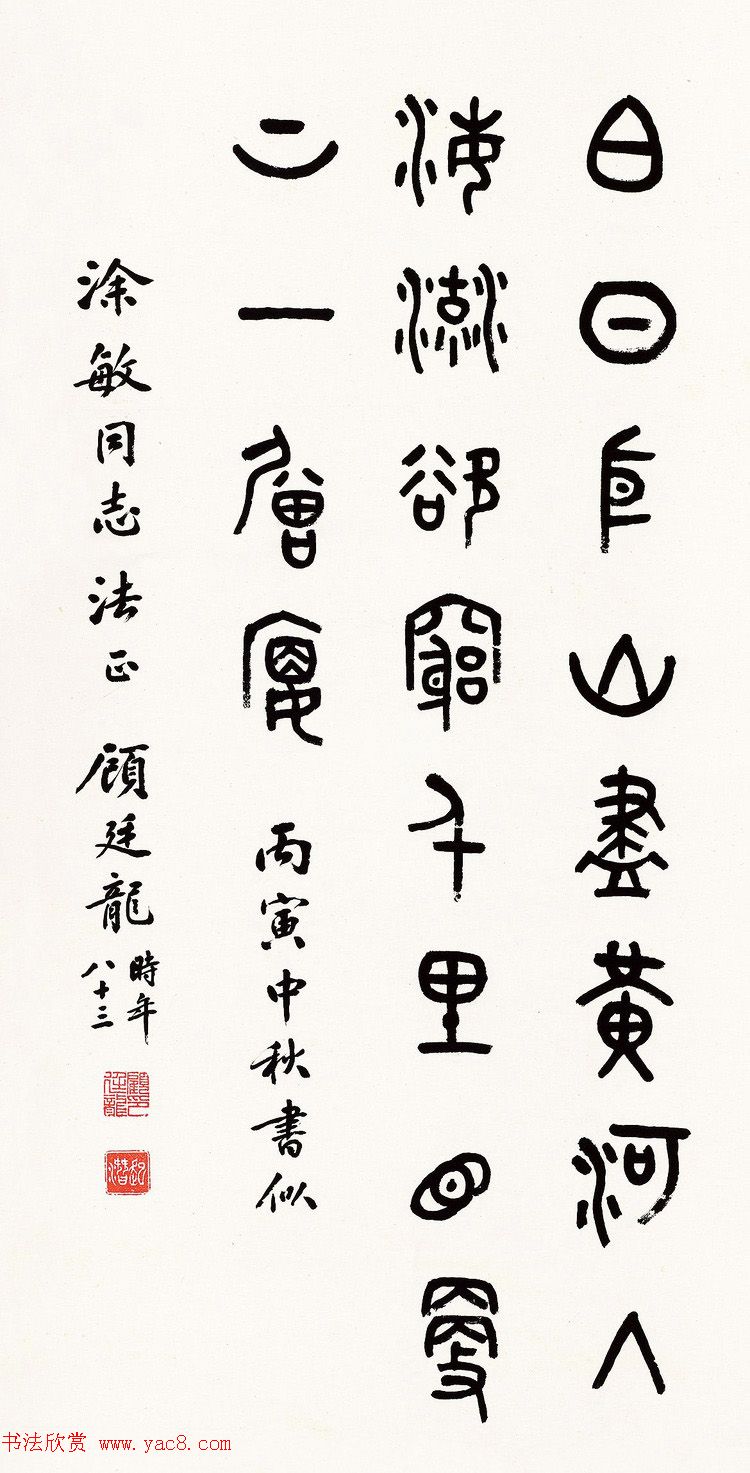 白日依山盡黃河入
海流欲窮千里目更
上一層樓 丙寅中秋書似
涂敏同志法正 顧廷龍 時年八十三
起潛
书法欣赏 www.yac8.com